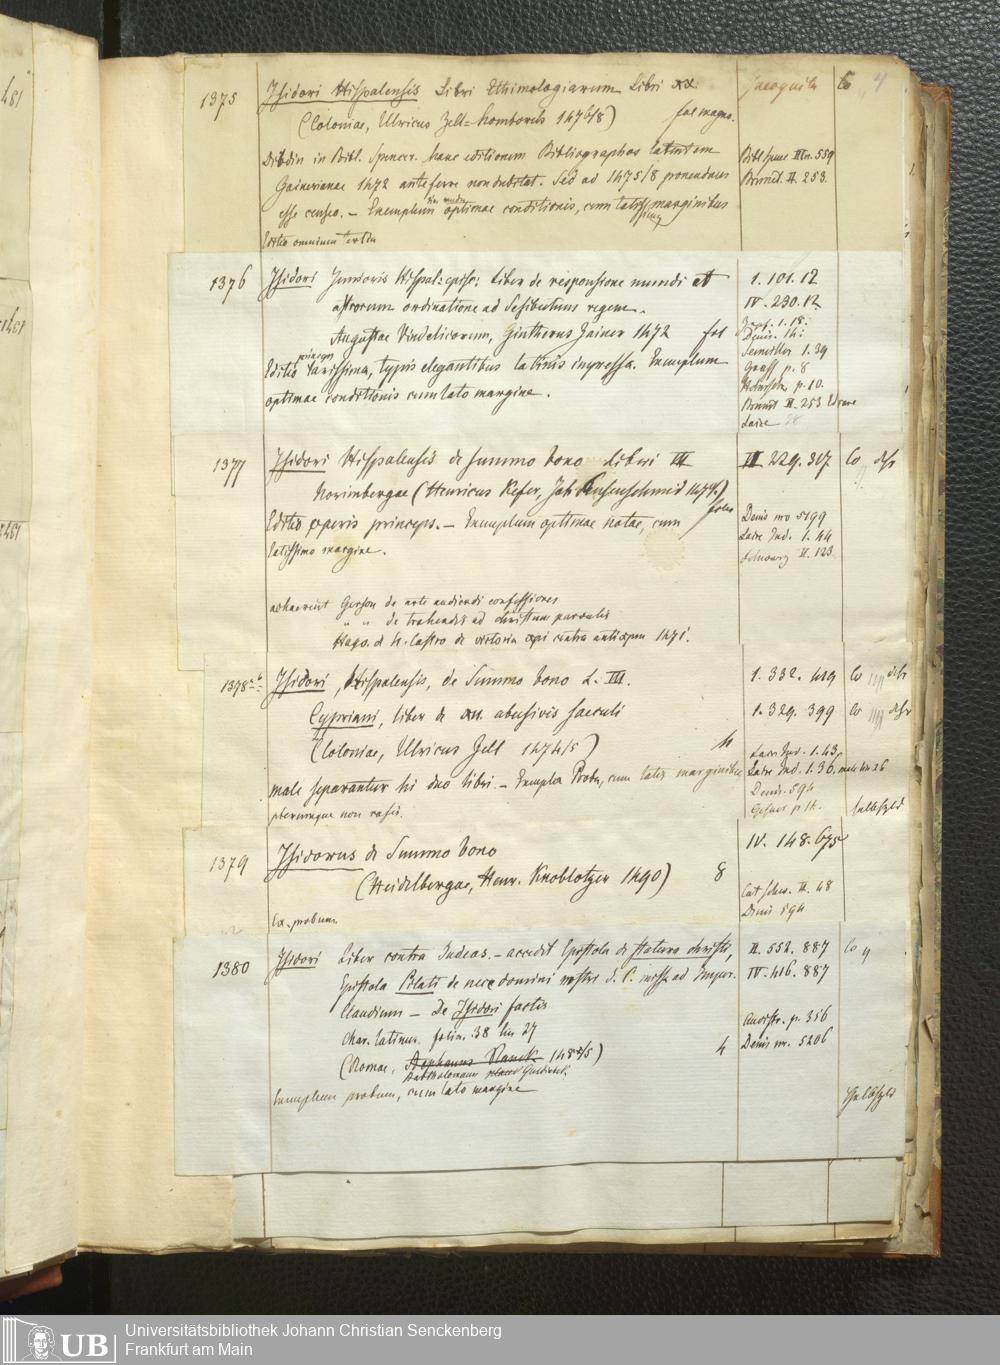 1375 Isidori Hispalensis Libri Ethimologiarum Libri xx.
(Coloniae, Ulricus Zell 1476/8) fol magno.
Dibdin in Bibl. Spencer. hanc editionem Bibliographos
Gainerianae 1472 anteferre non dubitat. Sed ad 1475/8 ponendam
esse censeo. – Exemplum optimae conditionis, cum latiss marginibus
Editio omnium tertia
Bibl. Spenc III n. 559
Brunet. II. 253.
Co 4
1376 Isidori Junioris Hispal: episc: Liber de responsione mundi et
astrorum ordinatione ad Sesibutum regem.
Augustae Vindelicorum, Gintherus Zainer 1472 fol
Editio princeps rarissima, typis elegantibus latinis impressa. Exemplum
optimae conditionis cum lato margine.
1. 101. 12
IV. 230. 12
Zapf. 1. 18:
Denis. 14:
Semiller 1. 39
p. 8
p. 10.
Brunet II. 253
Laire 28
1377 Isidori Hispalensis de summo bono Libri III
Norimbergae (Henricus Kefer, Joh Sensenschmid 1470.)
folio
Editio operis princeps. – Exemplum optimae notae, cum
latissimo margine.
adhaerent Gerson de arte audiendi confessiones
" " de trahendis ad christum parvulis
Hugo. d. n. Castro de victoria xpi contra antixpm 1471.
II 229. 317. Co
Denis nro 5199
Laire Ind. 1. 44
II. 123
1378 a. b. Isidori, Hispalensis, de Summo bono L. III.
Cypriani, liber de XII. abusivis saeculi
(Coloniae, Ulricus Zell 1474/5) 4
male separantur hi duo libri. – Exempla Proba, cum latis marginibus
plerumque non rasis.
1. 332. 419 Co
1. 329. 399 Co
Laire Ind. 1. 43.
Laire Ind. 1. 36.
Denis. 594
p. 14.
1379 Isidorus de Summo bono
(Heidelbergae, Henr. Knoblotzer 1490) 8
Ex. probum
IV. 148. 675
II. 48
Denis 594
1380 Isidori Liber contra Iudeos. – accedit Epistola de statura christi,
Epistola Pilati de nece domini nostri J. C. missa ad Imper.
Claudium – De Isidori factis
char. latinus. folior. 38 lin 27
(Romae, Stephanus Planck 148 /5) 4
Bartholomaeus Guldinbek
Exemplum probum, cum lato margine
II. 552. 887 Co 4
IV. 416. 887
Audiffr. p. 356
Denis nr. 5206
UB
Universitätsbibliothek Johann Christian Senckenberg
Frankfurt am Main